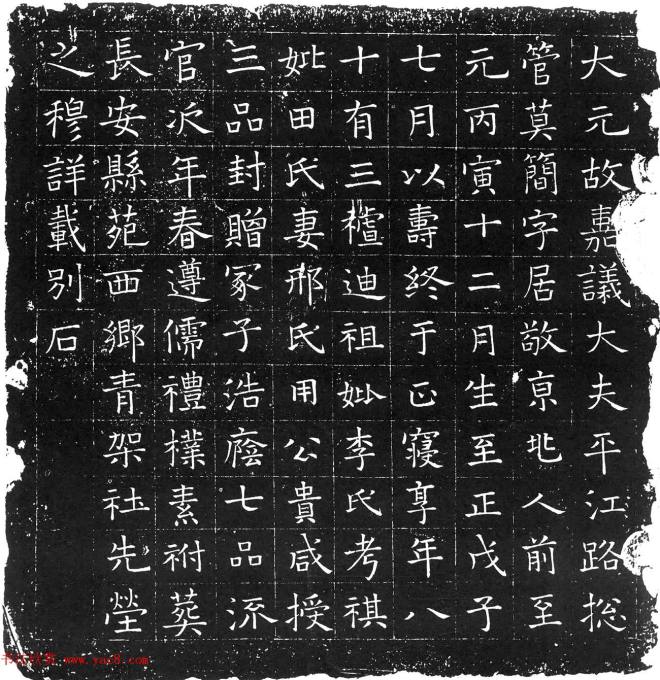 大元故嘉議大夫平江路揔
管莫簡字居敬京兆人前至
元丙寅十二月生至正戊子
七月以壽終于正寢享年八
十有三櫝迪祖妣李氏考祺
妣田氏妻邢氏用公貴咸授
三品封贈冢子浩廕七品流
官次年春遵儒禮樸素祔葬
長安縣苑西鄉青架社先塋
之穆詳載別石
www.yac8.com